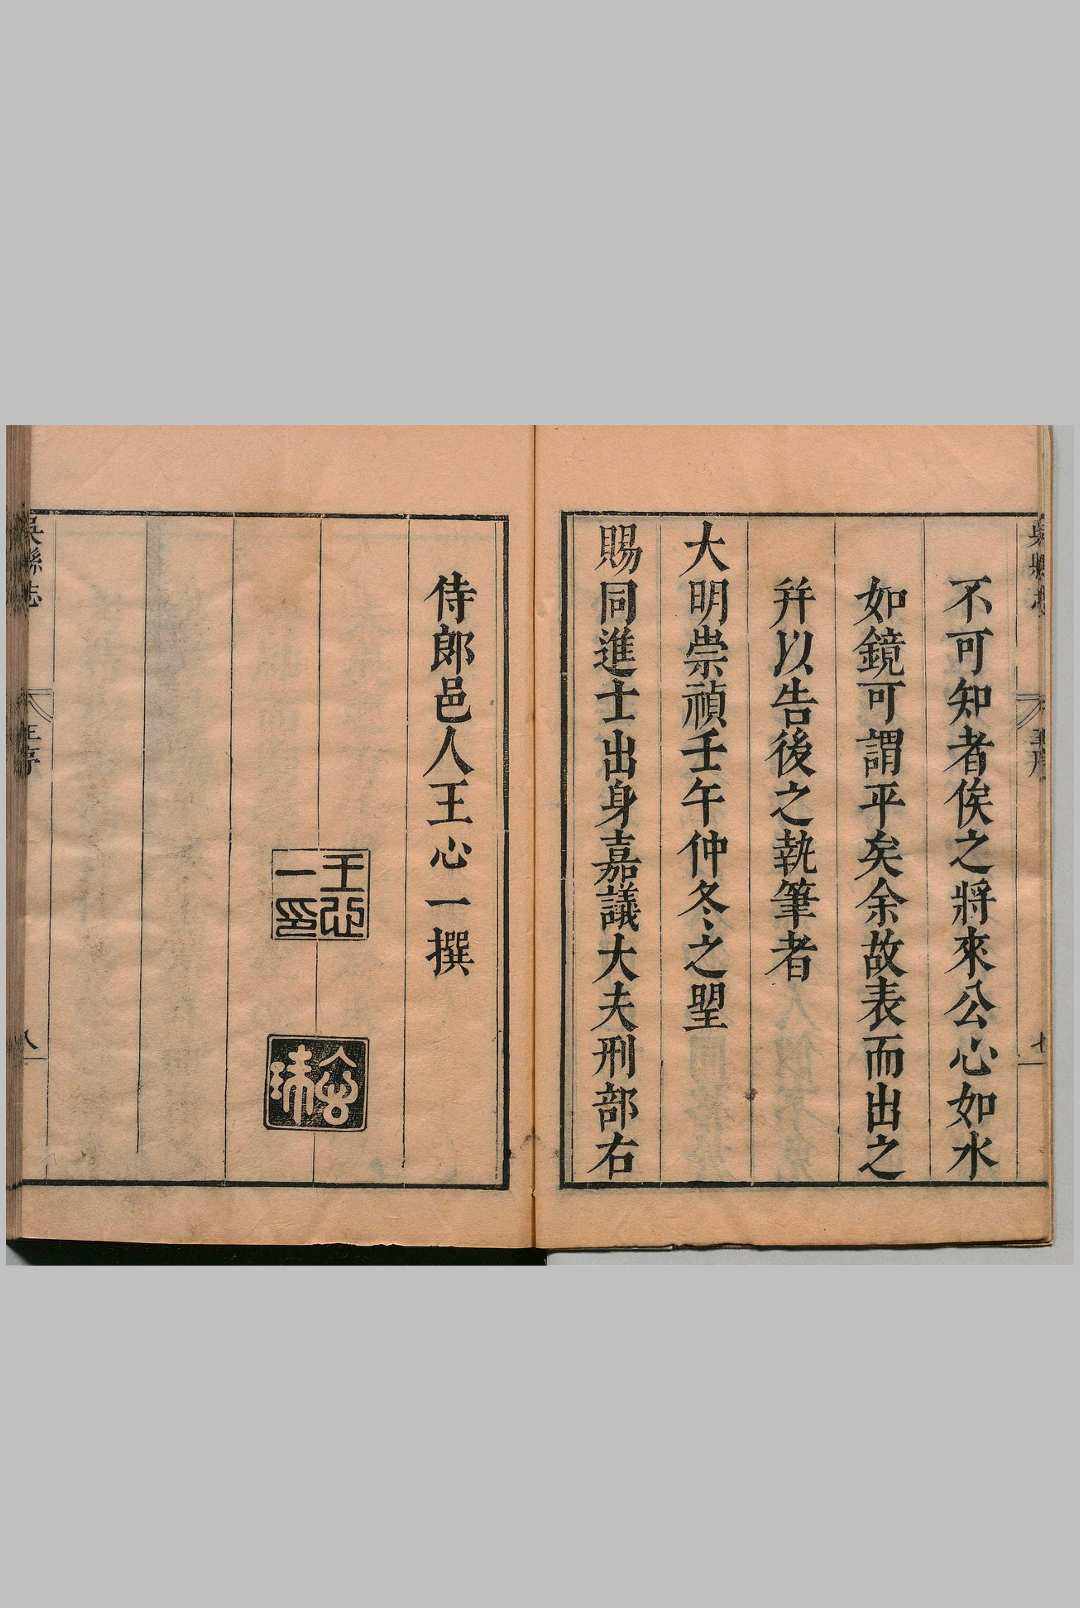 不可知者俟之將來公心如水
如鏡可謂平矣余故表而出之
并以告後之執筆者
大明崇禎壬午仲冬之朢
賜同進士出身嘉議大夫刑部右
侍郎邑人王心一撰
王心
一印
吳縣志
王序
八